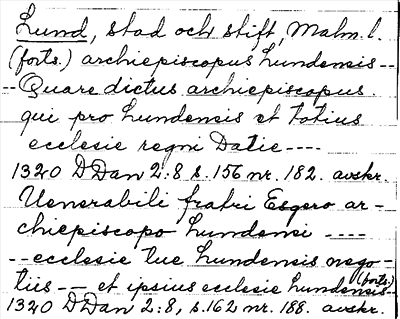 Lund, stad och stift, Malm. l.
(forts.) archiepiscopus Lundensis --
-- Quare dictus archiepiscopus.
qui pro Lundensis et totius
ecclesie regni Datie ----
1320 DDan 2:8 s. 156 nr. 182. avskr.
Uenerabili fratri Esgero ar-
chiepiscopo Lundensi ----
-- ecclesie tue Lundensis nego-
tiis -- et ipsius ecclesie Lundensis -- (forts.)
1320 DDan 2:8, s. 162 nr. 188. avskr.